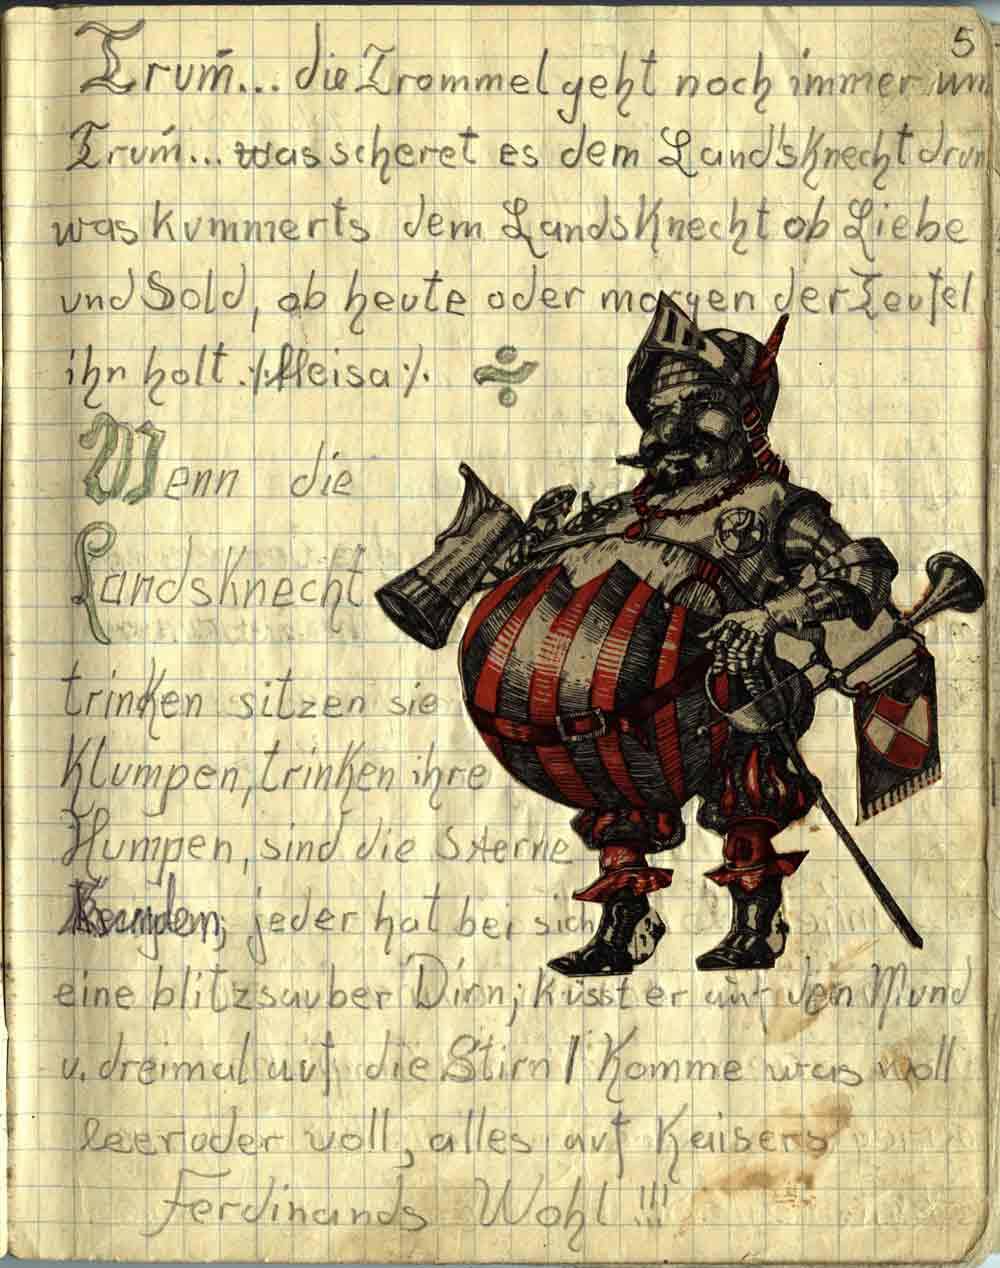 5
Trum̄... die Trommel geht noch immer um
Trum̄... was scheret es dem Land'sknecht drum
was kummerts dem Landsknecht ob Liebe
und Sold, ob heute oder morgen der Teufel
ihn holt ·/.Heisa·/.
Wenn die
Landsknecht
trinken sitzen sie
Klumpen, trinken ihre
Humpen, sind die Sterne
jeder hat bei sich
eine blitzsauber Dirn; küsst er auf den Mund
u. dreimal auf die Stirn / Komme was woll
leer oder voll, alles auf Kaisers
Ferdinands Wohl !!!